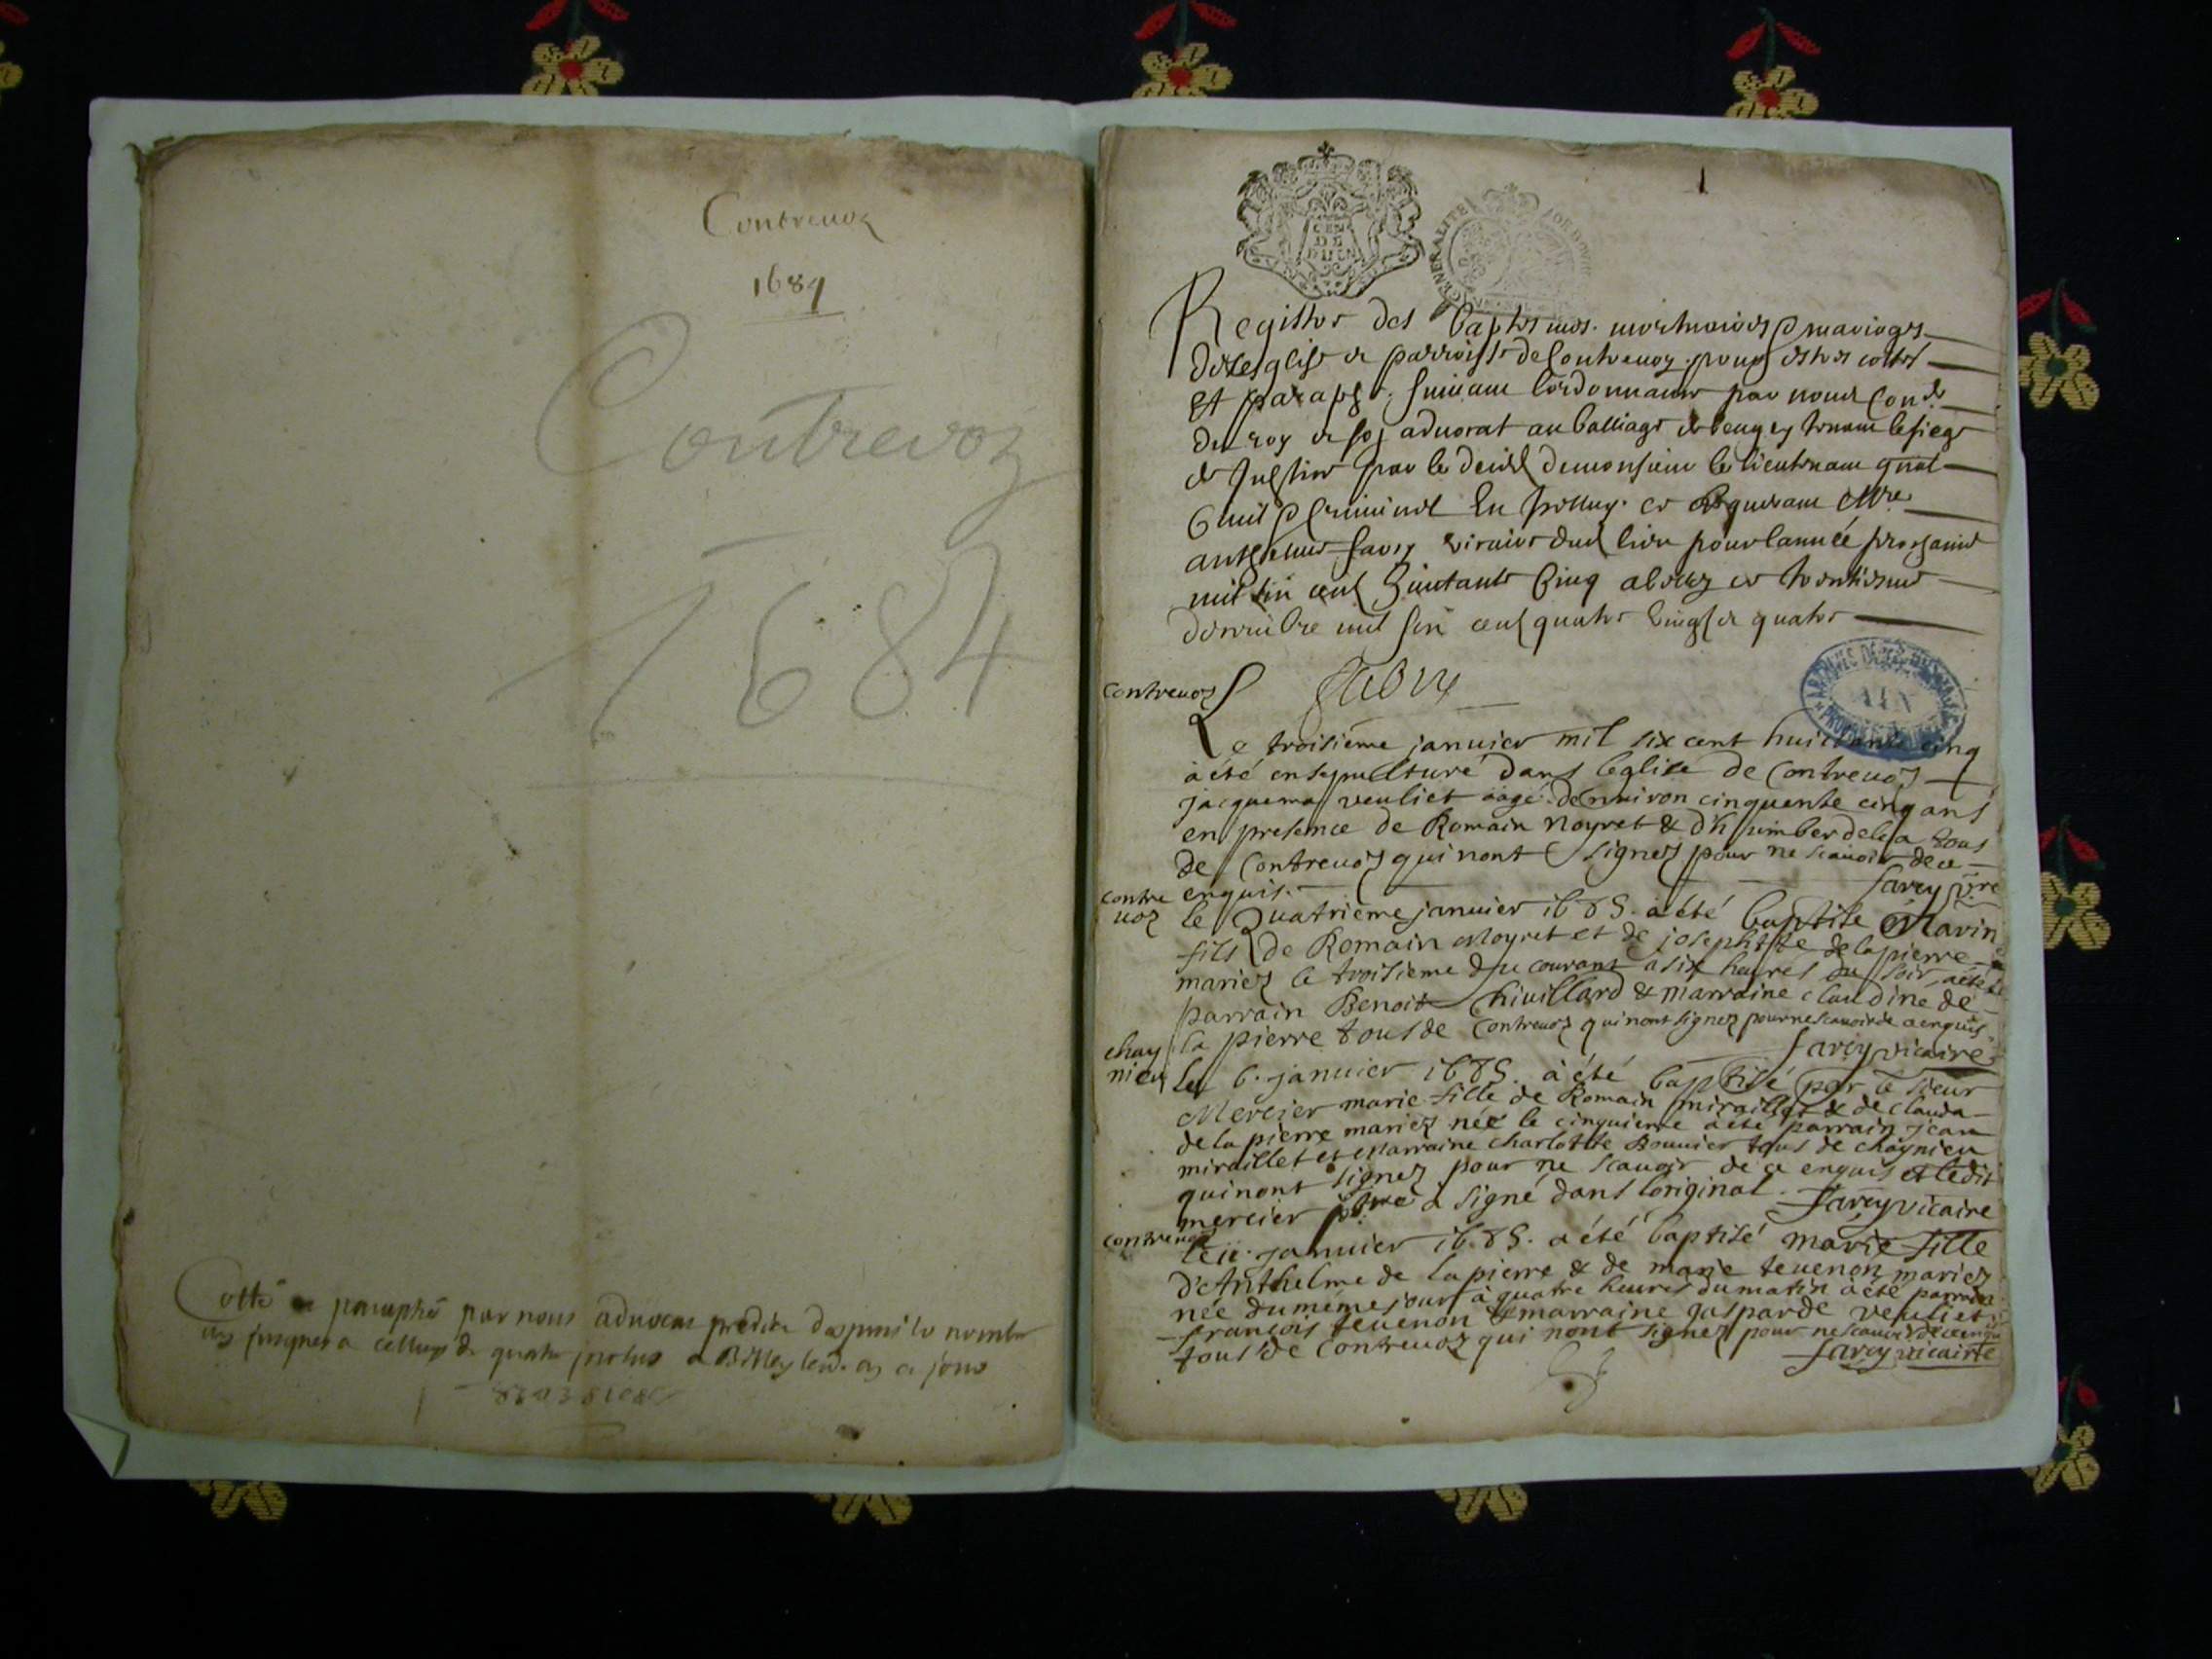 Contrevoz
1684
Contrevoz
1684
Cotté et paraphé par nous advocat predit despuis le nombre
un jusques a celluy de quatre inclus a Billey led. an et jour
1
GENERALITE DE BOURG
Registre des baptesmes mortuaires & mariages
de lesglise et parroisse de Contrevoz pour estre cotté
et paraphé suivant lordonnance par nous Cons.er
du roy et son advocat au balliage de beugey tenant le siege
de justice par le deceds de monsieur le lieutenant gnal
Civil & Criminel En icelluy et requerant Mre
anthelme farcy vicaire dud lieu pour lannée prochaine
mil six cent huictante Cinq a belley ce trentiesme
decembre mil six cent quatre vingt et quatre
ARCHIVES DEPARTEMENTALES
AIN
contrevoz
Le troisiéme janvier mil six cent huictante cinq
à été ensepulturé dans leglise de Contrevoz
jacquema veuliet aagé denviron cinquente cinq ans
en presence de Romain Noyret & d'humber dela tous
de Contrevoz qui nont signez pour ne scavoir de ce
enquis. farcy vire
contre
voz
le Quatrieme janvier 1685. à été baptisé Marin
fils de Romain Moyret et de josephtte de la pierre
mariez le troisieme du courant a six heures du soir, a été le
parrain Benoit Chivillard & marraine claudine de
la pierre tous de Contrevoz qui nont signez pour ne scavoir de ce enquis
farcy vicaire
chay
nieu
Le 6. janvier 1685. à été baptisé par le sieur
Mercier marie fille de Romain miraillet & de clauda
de la pierre mariez née le cinquieme à été parrain jean
miraillet et Marraine charlotte Bonnier tous de chaynieu
qui nont signez pour ne scavoir de ce enquis et ledit
mercier ptre a signé dans loriginal. farcy vicaire
contrevoz
le ii. janvier 1685. a été baptisé marie fille
d'Anthelme de la pierre & de marie tevenon mariez
née du méme jour à quatre heures du matin à été parrain
françois tevenon & marraine gasparde veuliet
tous de Contrevoz qui nont signez pour ne scavoir de ce enquis
farcy vicaire